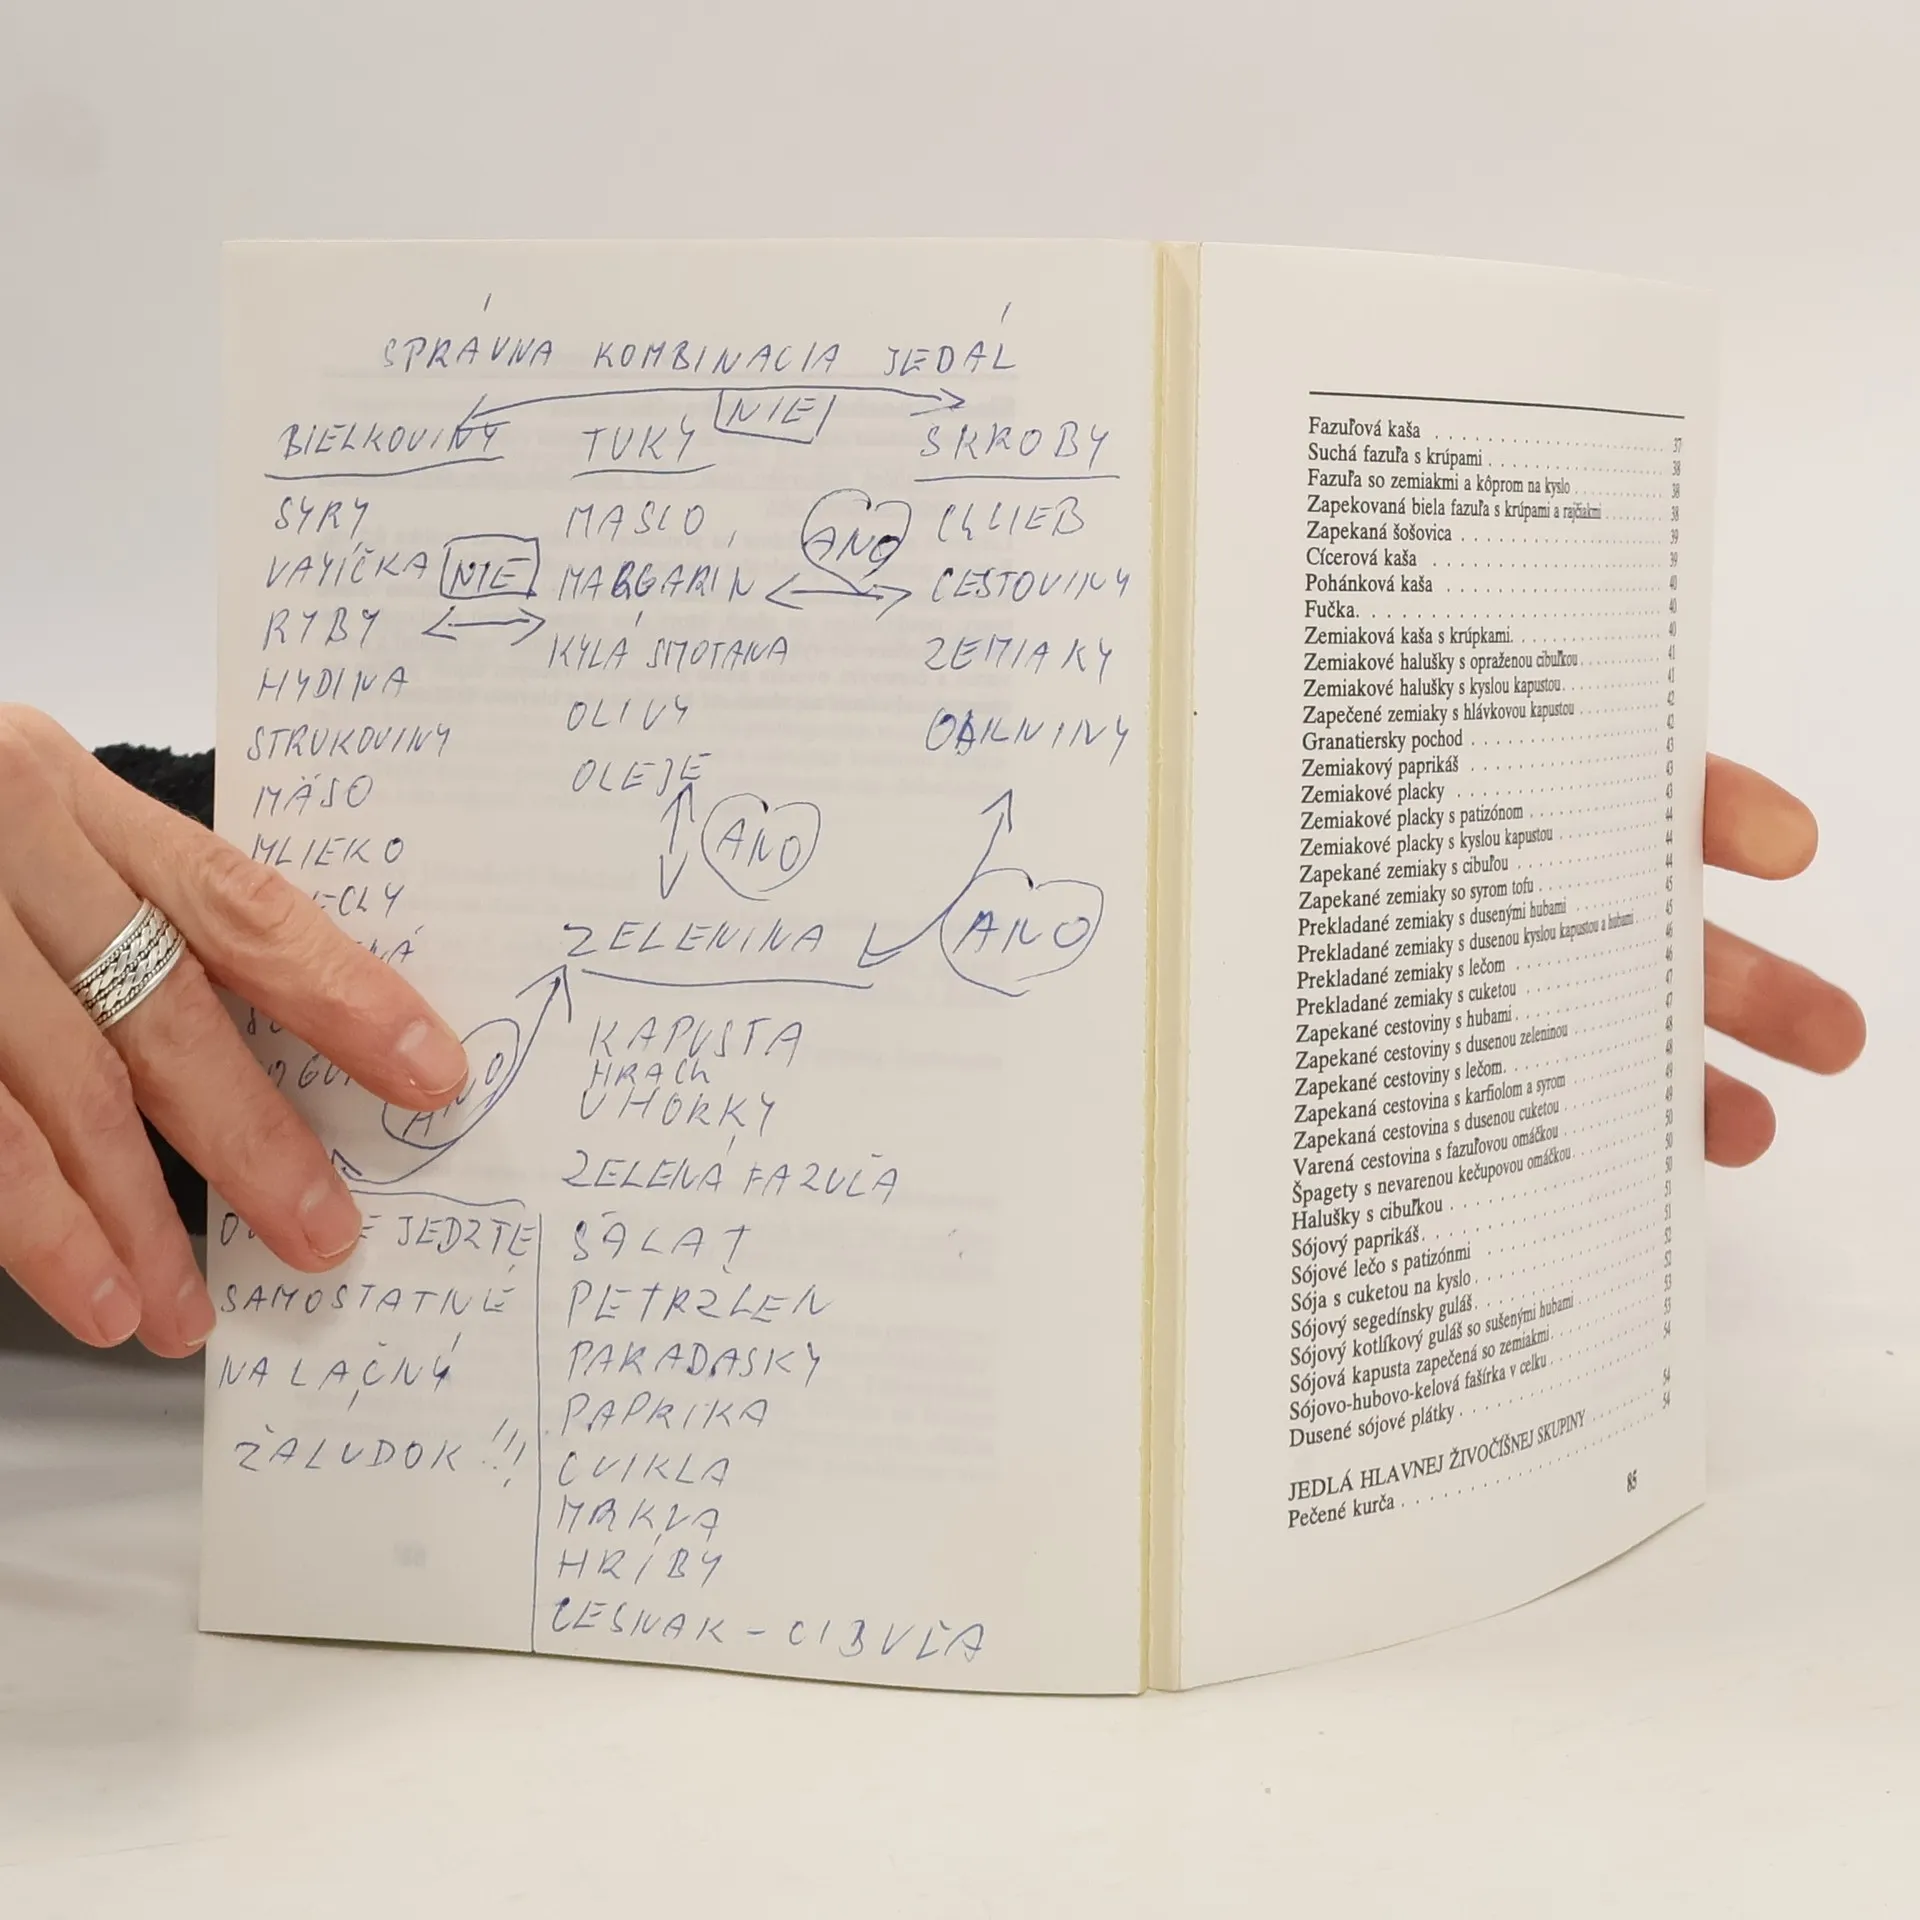 SPRÁVNA KOMBINÁCIA JEDÁL
NIE
BIELKOVINY TUKY ŠKROBY
SYRY MASLO, CHLIEB
VAYÍČKA NIE MARGARIN ÁNO CESTOVINY
RYBY KYLÁ SMOTANA ZEMIAKY
HYDINA OLIVY OBILNINY
STRUKOVINY OLEJE
MÄSO
MLIEKO ÁNO
ZELENINA ÁNO
KAPUSTA
HRACH
ÁNO UHORKY
ZELENÁ FAZUĽA
JEDZTE ŠALÁT
SAMOSTATNE PETRŽLEN
NA LAČNÝ PARADAJKY
ŽALÚDOK !!! PAPRIKA
CVIKLA
MRKVA
HRÍBY
CESNAK – CIBUĽA
Fazuľová kaša . . . 37
Suchá fazuľa s krúpami . . . 38
Fazuľa so zemiakmi a kôprom na kyslo . . . 38
Zapekovaná biela fazuľa s krúpami a rajčiakmi . . . 38
Zapekaná šošovica . . . 39
Cícerová kaša . . . 39
Pohánková kaša . . . 40
Fučka. . . . 40
Zemiaková kaša s krúpkami. . . . 40
Zemiakové halušky s opraženou cibuľkou . . . 41
Zemiakové halušky s kyslou kapustou . . . 41
Zapečené zemiaky s hlávkovou kapustou . . . 42
Granatiersky pochod . . . 42
Zemiakový paprikáš . . . 43
Zemiakové placky . . . 43
Zemiakové placky s patizónom . . . 43
Zemiakové placky s kyslou kapustou . . . 44
Zapekané zemiaky s cibuľou . . . 44
Zapekané zemiaky so syrom tofu . . . 44
Prekladané zemiaky s dusenými hubami . . . 45
Prekladané zemiaky s dusenou kyslou kapustou a hubami . . . 45
Prekladané zemiaky s lečom . . . 46
Prekladané zemiaky s cuketou . . . 46
Zapekané cestoviny s hubami . . . 47
Zapekané cestoviny s dusenou zeleninou . . . 47
Zapekané cestoviny s lečom. . . . 48
Zapekaná cestovina s karfiolom a syrom . . . 48
Zapekaná cestovina s dusenou cuketou . . . 49
Varená cestovina s fazuľovou omáčkou . . . 49
Špagety s nevarenou kečupovou omáčkou . . . 50
Halušky s cibuľkou . . . 50
Sójový paprikáš. . . . 50
Sójové lečo s patizónmi . . . 51
Sója s cuketou na kyslo . . . 51
Sójový segedínsky guláš. . . . 52
Sójový kotlíkový guláš so sušenými hubami . . . 52
Sójová kapusta zapečená so zemiakmi . . . 53
Sójovo-hubovo-kelová fašírka v celku . . . 53
Dusené sójové plátky . . . 54
JEDLÁ HLAVNEJ ŽIVOČÍŠNEJ SKUPINY . . . 54
Pečené kurča . . . 54
85